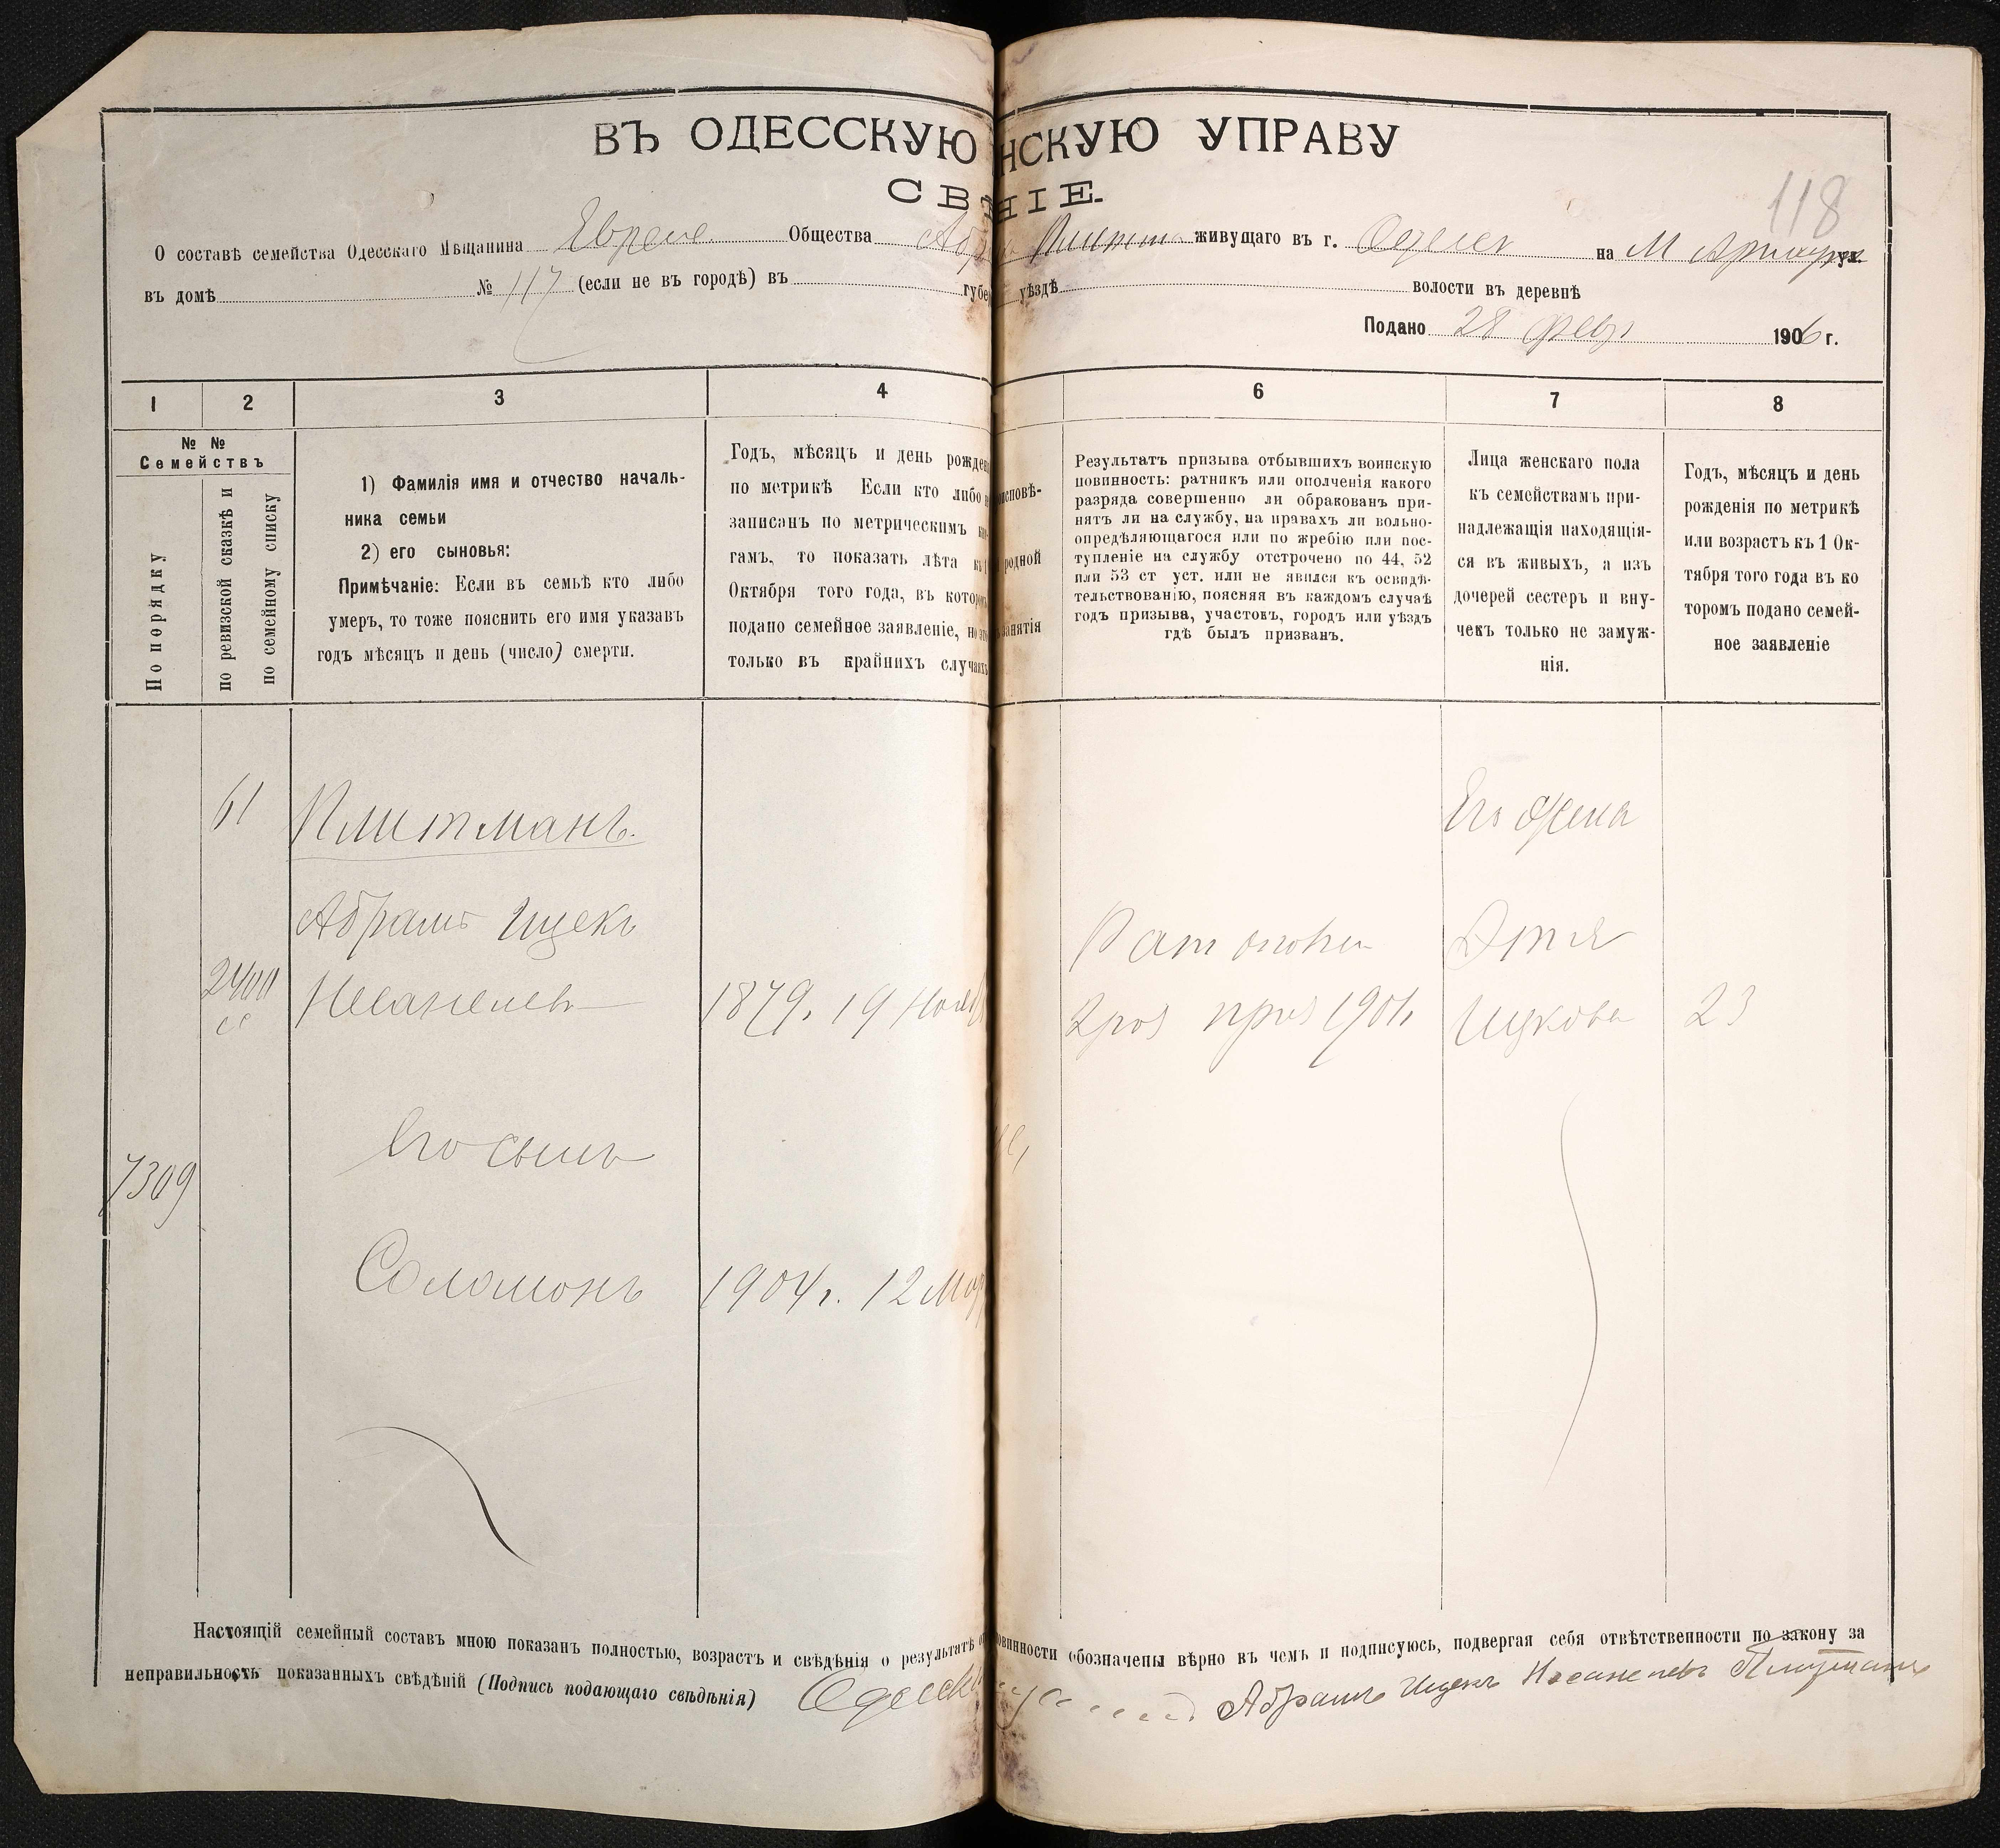 ВЪ ОДЕССКУЮ НСКУЮ УПРАВУ
СВ НІЕ.
118
О составѣ семейства Одесскаго Мѣщанина Еврей Общества Абр Плитман живущаго въ г. Одессѣ на М Арнаут ул.
въ домѣ № 117 (если не въ городѣ) въ губе уѣздѣ волости въ деревнѣ
Подано 28 февр 1906 г.
1 2 3 4 6 7 8
№ №
Семействъ
По порядку
по ревизской сказкѣ и
по семейному списку
1) Фамилія имя и отчество началь-
ника семьи
2) его сыновья:
Примѣчаніе: Если въ семьѣ кто либо
умеръ, то тоже пояснить его имя указавъ
годъ мѣсяцъ и день (число) смерти.
Годъ, мѣсяцъ и день рожден
по метрикѣ Если кто либо н
записанъ по метрическимъ кн
гамъ, то показать лѣта къ 1
Октября того года, въ котором
подано семейное заявленіе, но это
только въ крайнихъ случаяхъ
исповѣ-
родной
занятія
Результатъ призыва отбывшихъ воинскую
повинность: ратникъ или ополченія какого
разряда совершенно ли обракованъ при-
нятъ ли на службу, на правахъ ли вольно-
опредѣляющагося или по жребію или пос-
тупленіе на службу отстрочено по 44, 52
или 53 ст уст. или не явился къ освидѣ-
тельствованію, поясняя въ каждомъ случаѣ
годъ призыва, участовъ, городъ или уѣздъ
гдѣ былъ призванъ.
Лица женскаго пола
къ семействамъ при-
надлежащія находящія-
ся въ живыхъ, а изъ
дочерей сестеръ и вну-
чекъ только не замуж-
нія.
Годъ, мѣсяцъ и день
рожденія по метрикѣ
или возрастъ къ 1 Ок-
тября того года въ ко
торомъ подано семей-
ное заявленіе
61 Плитманъ. Его жена
Абрамъ Ицекъ Рат ополч Этя
2400 Несанелевъ 1879. 19 Нояб 2 раз приз 1901 Ицкова 23
Его сынъ
7309
Соломонъ 1904 г. 12 Мар
Настоящій семейный составъ мною показанъ полностью, возрастъ и свѣдѣнія о результатѣ о повинности обозначены вѣрно въ чемъ и подписуюсь, подвергая себя отвѣтственности по закону за
неправильность показанныхъ свѣдѣній (Подпись подающаго свѣдѣнія) Одесск Абрамъ Ицекъ Несанелевъ Плитманъ